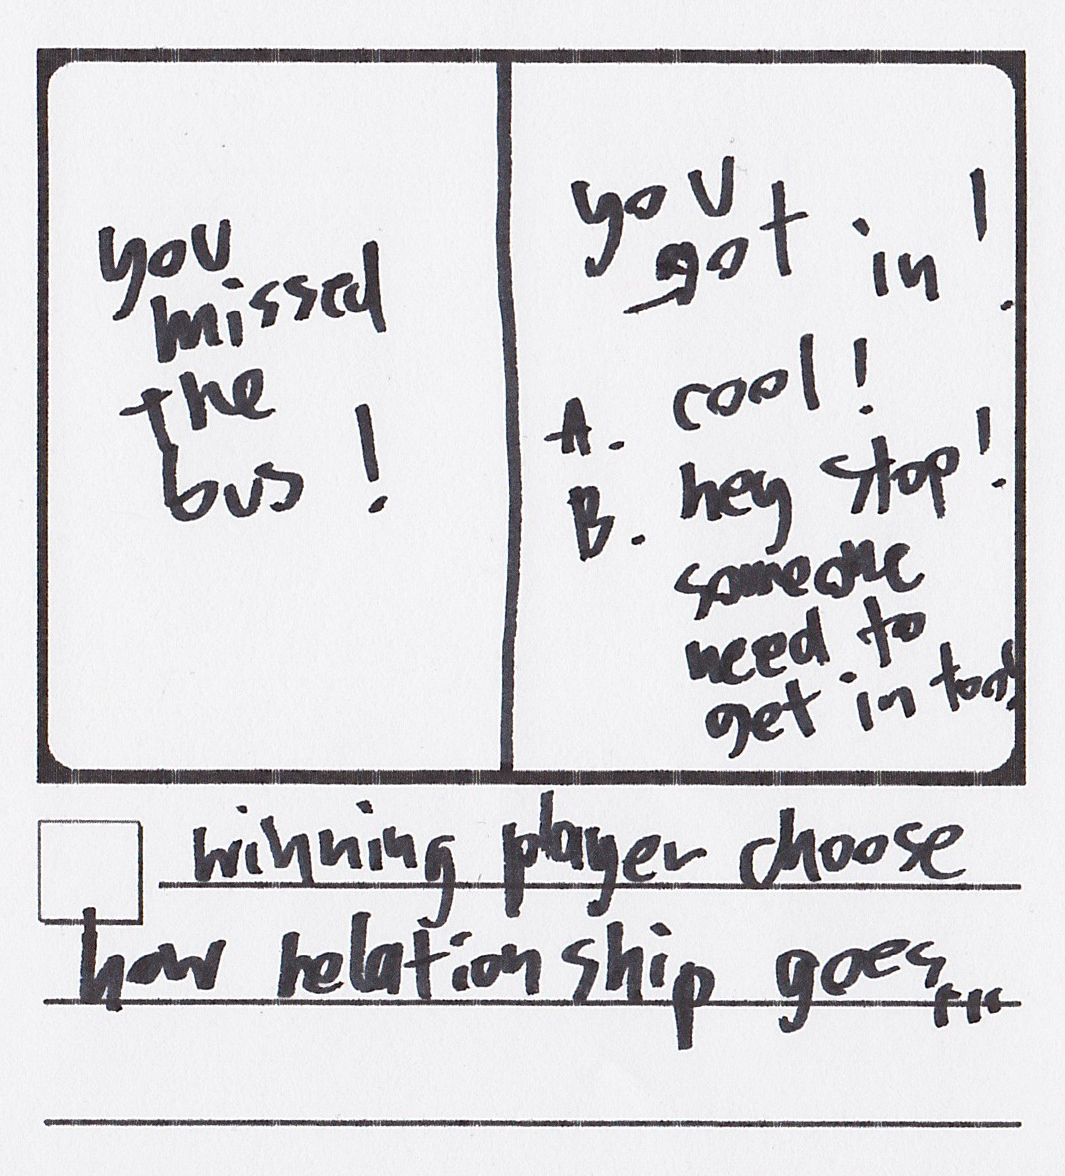 you
missed
the
bus !
you
got in !
A. cool !
B. hey stop !
someone
need to
get in too!
winning player choose
how relationship goes...